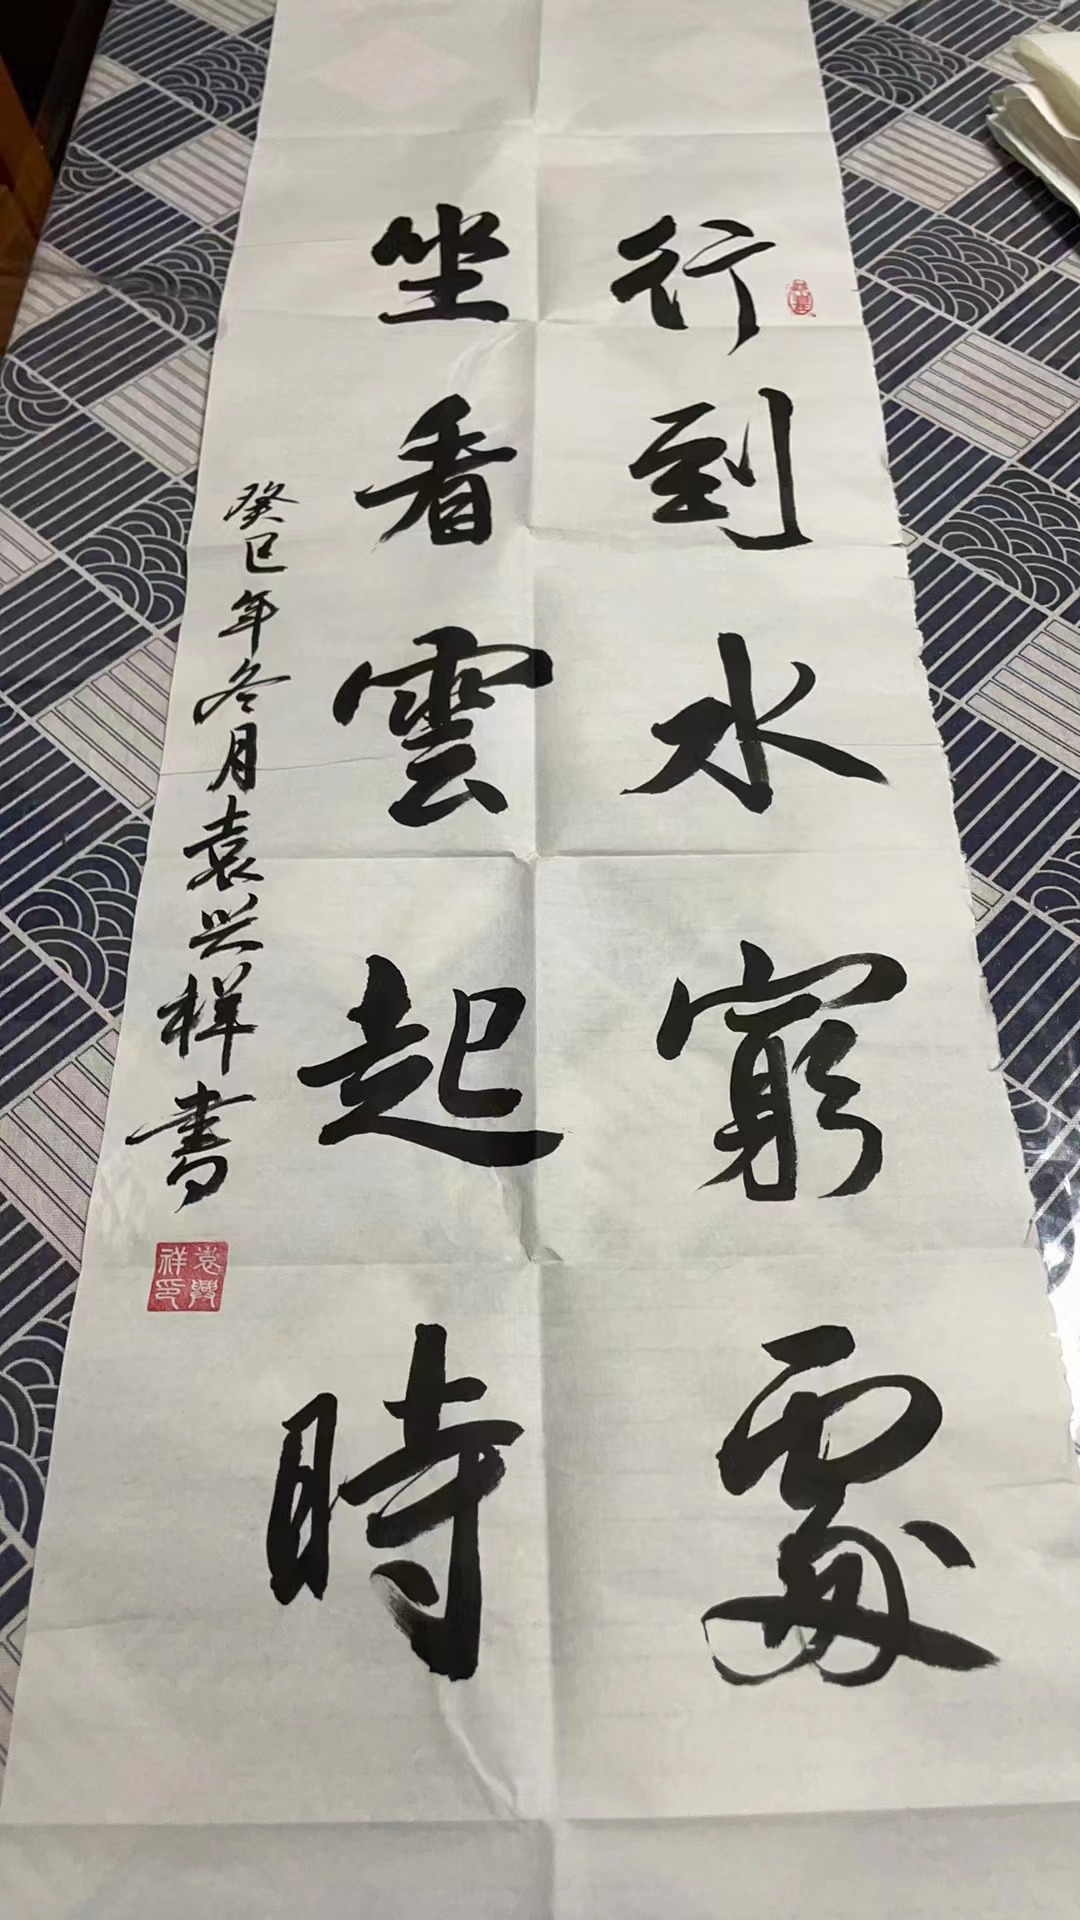 行到水窮處
坐看雲起時
癸巳年冬月袁兴祥書
袁興祥印